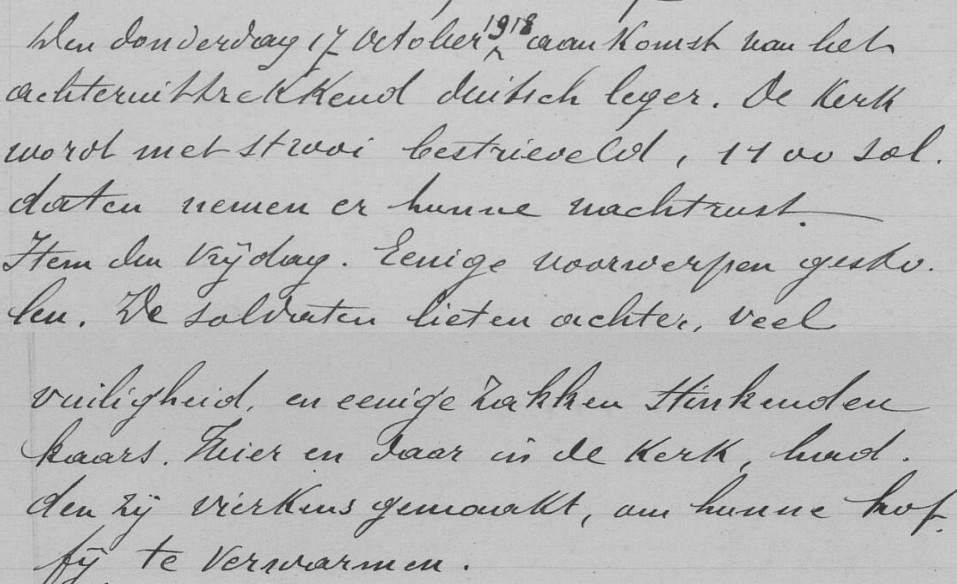 Den donderdag 17 October 1918 aankomst van het
achteruittrekkend duitsch leger. De Kerk
wordt met strooi bestrieveld, 1400 sol.
daten nemen er hunne nachtrust.
Item den Vrijdag. Eenige voorwerpen gesto.
len. De soldaten lieten achter, veel
vuiligheid, en eenige zakken stinkenden
kaars. Hier en daar in de Kerk, had.
den zij vierkens gemaakt, om hunne kof.
fij te verwarmen.